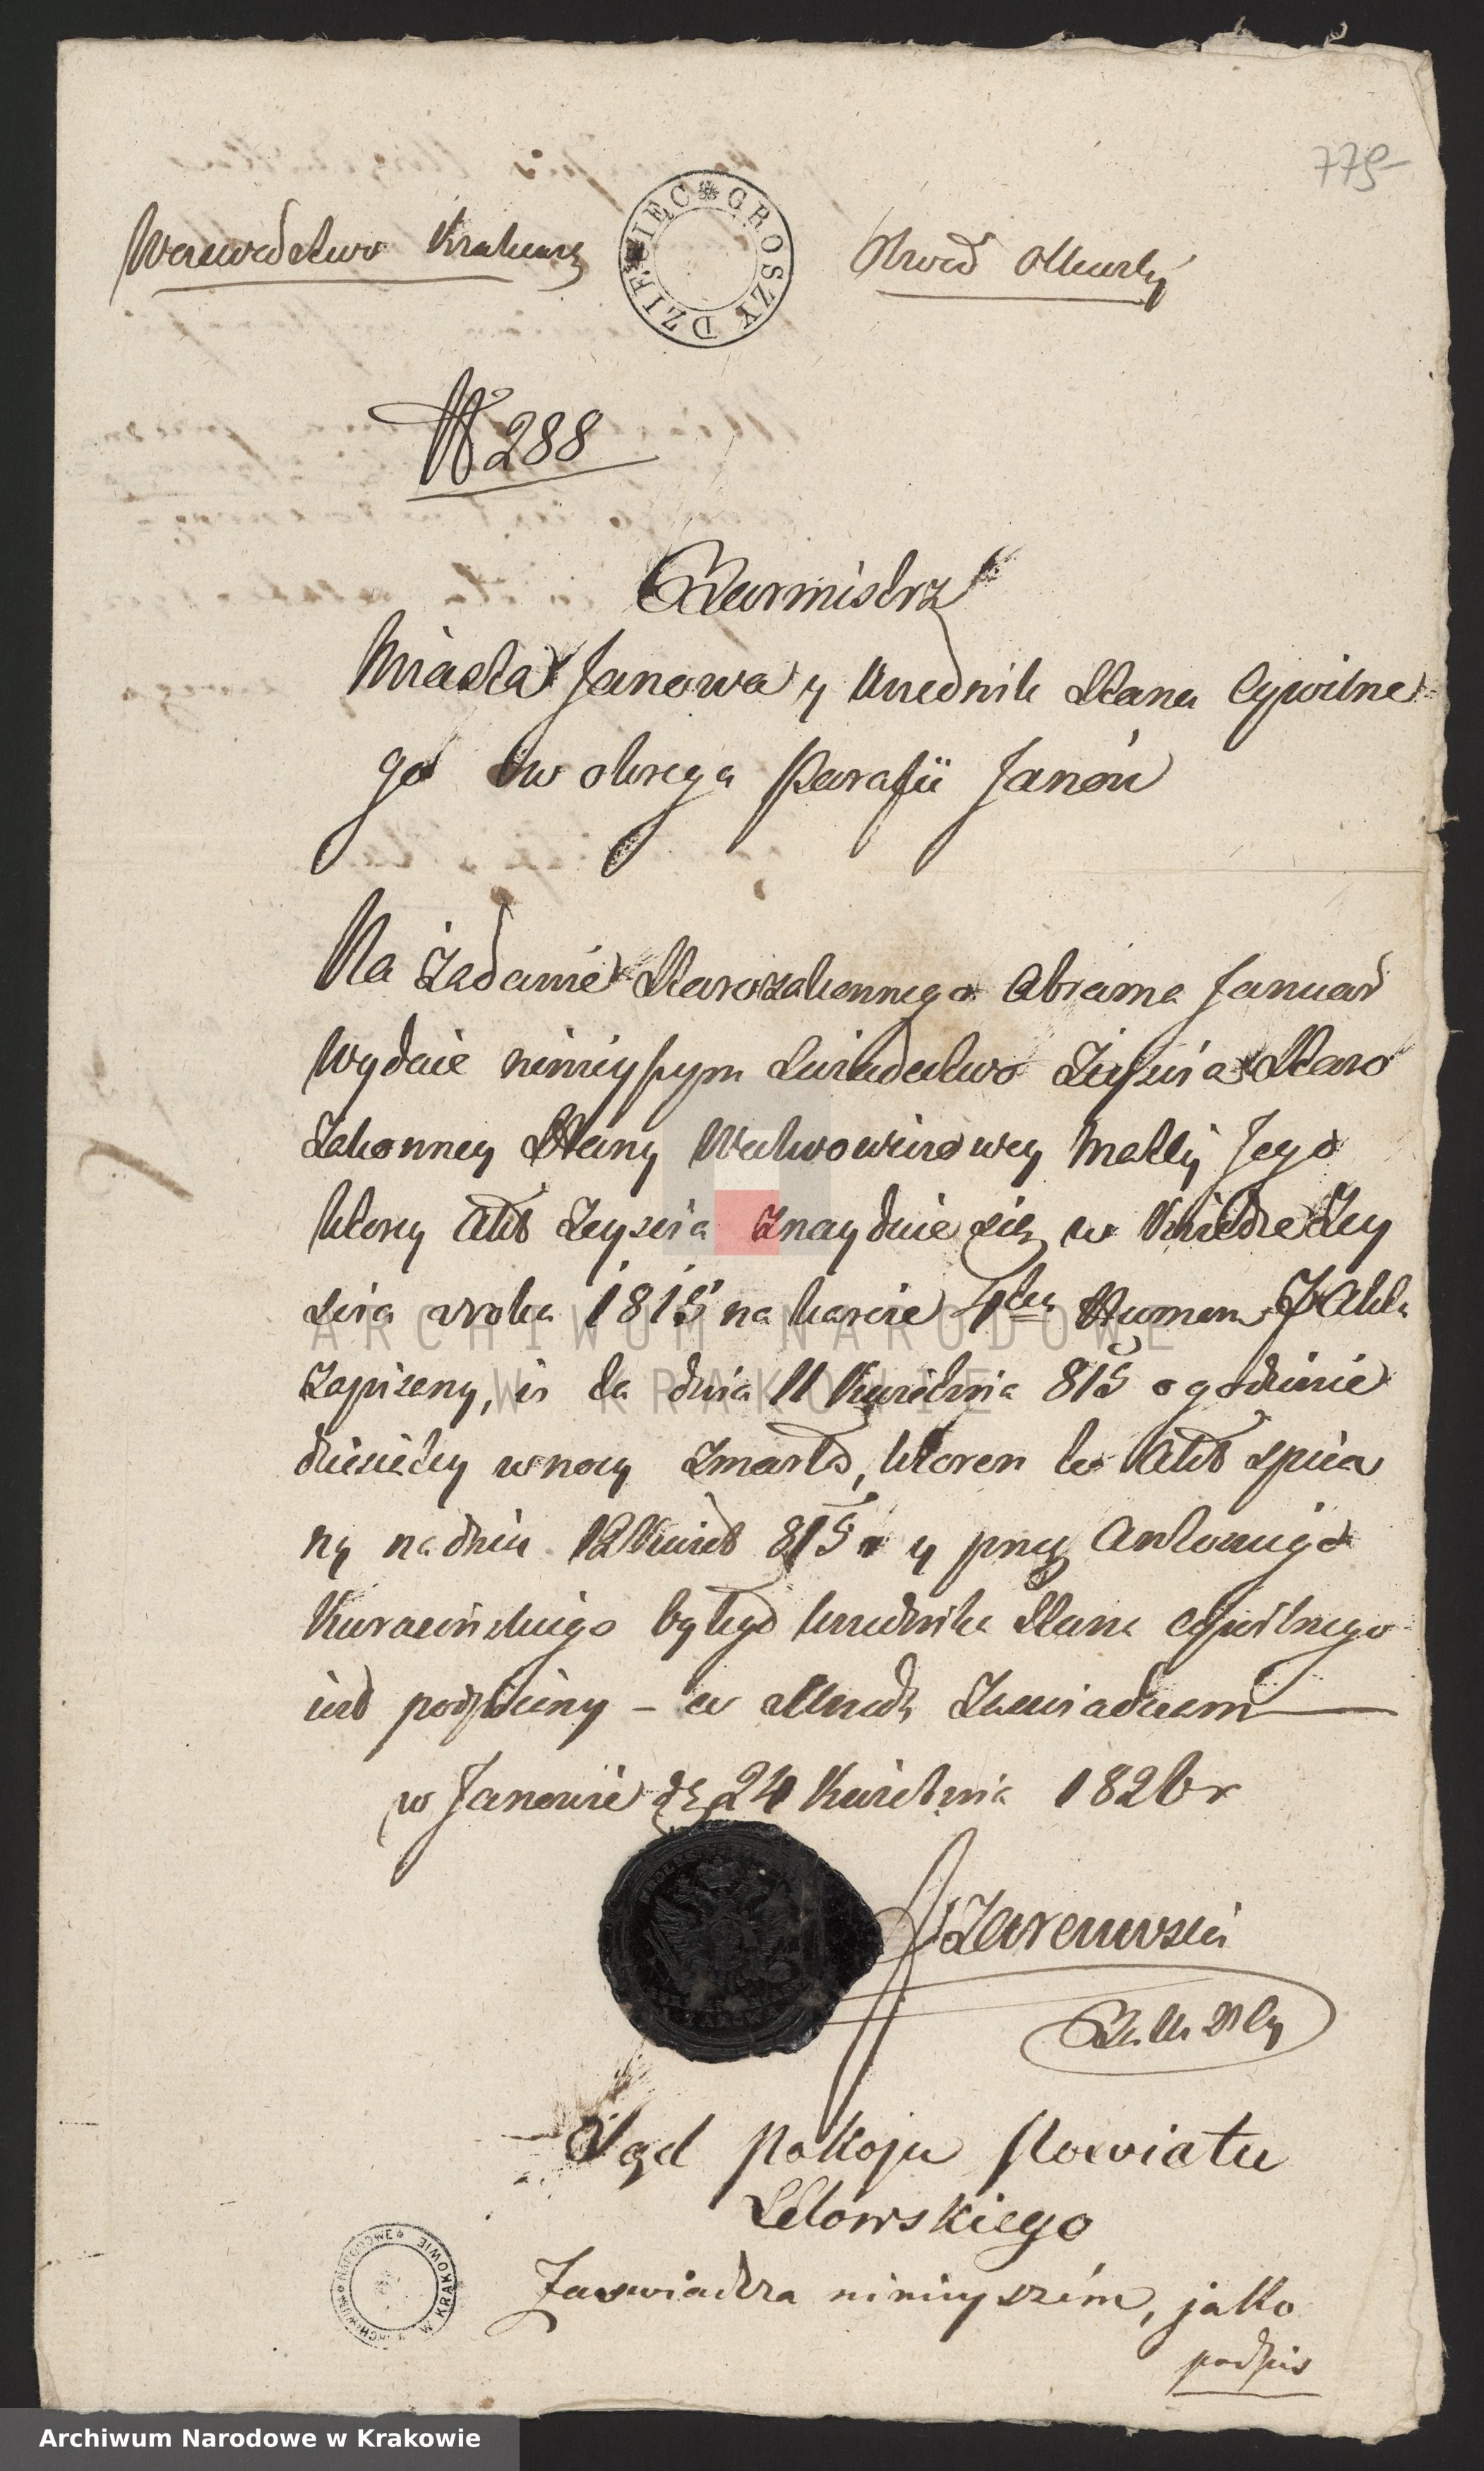 779
Woiewodztwo Krakows
DZIESIĘC GROSZY
Obwod Olkuski
N 288
Burmistrz
Miasta Janowa y Urzednik Stanu Cywilne
go w okręgu Parafii Janów
Na Żadanie Starozakonnego Abrama Januar
wydaie ninieyszym Swiadectwo Zeyscia Staro
zakonney Wulwowiczowey Matki Jego
ktory Akt Zeyscia znayduie się w Księdze Zey
scia zroku 1815 na karcie 4tey Numer Aktu
zapisany, iz ta dnia 11 Kwietnia 815 o godzinie
dziesiątey w nocy zmarła, ktoren to Akt spisa
ny na dniu 12 Kwiet 815 r y przez Antoniego
Kuracinskiego byłego Urzednika Stanu Cywilnego
iest podpisany – co Urzędk Zaswiadczam
w Janowie dn 24 Kwietnia 1826 r
Zarenwski
Sąd Pokoju Powiatu
Lelowskiego
Zaswiadcza ninieyszém, jako
podpis
ARCHIWUM NARODOWE
W KRAKOWIE
ARCHIWUM NARODOWE W KRAKOWIE
Archiwum Narodowe w Krakowie